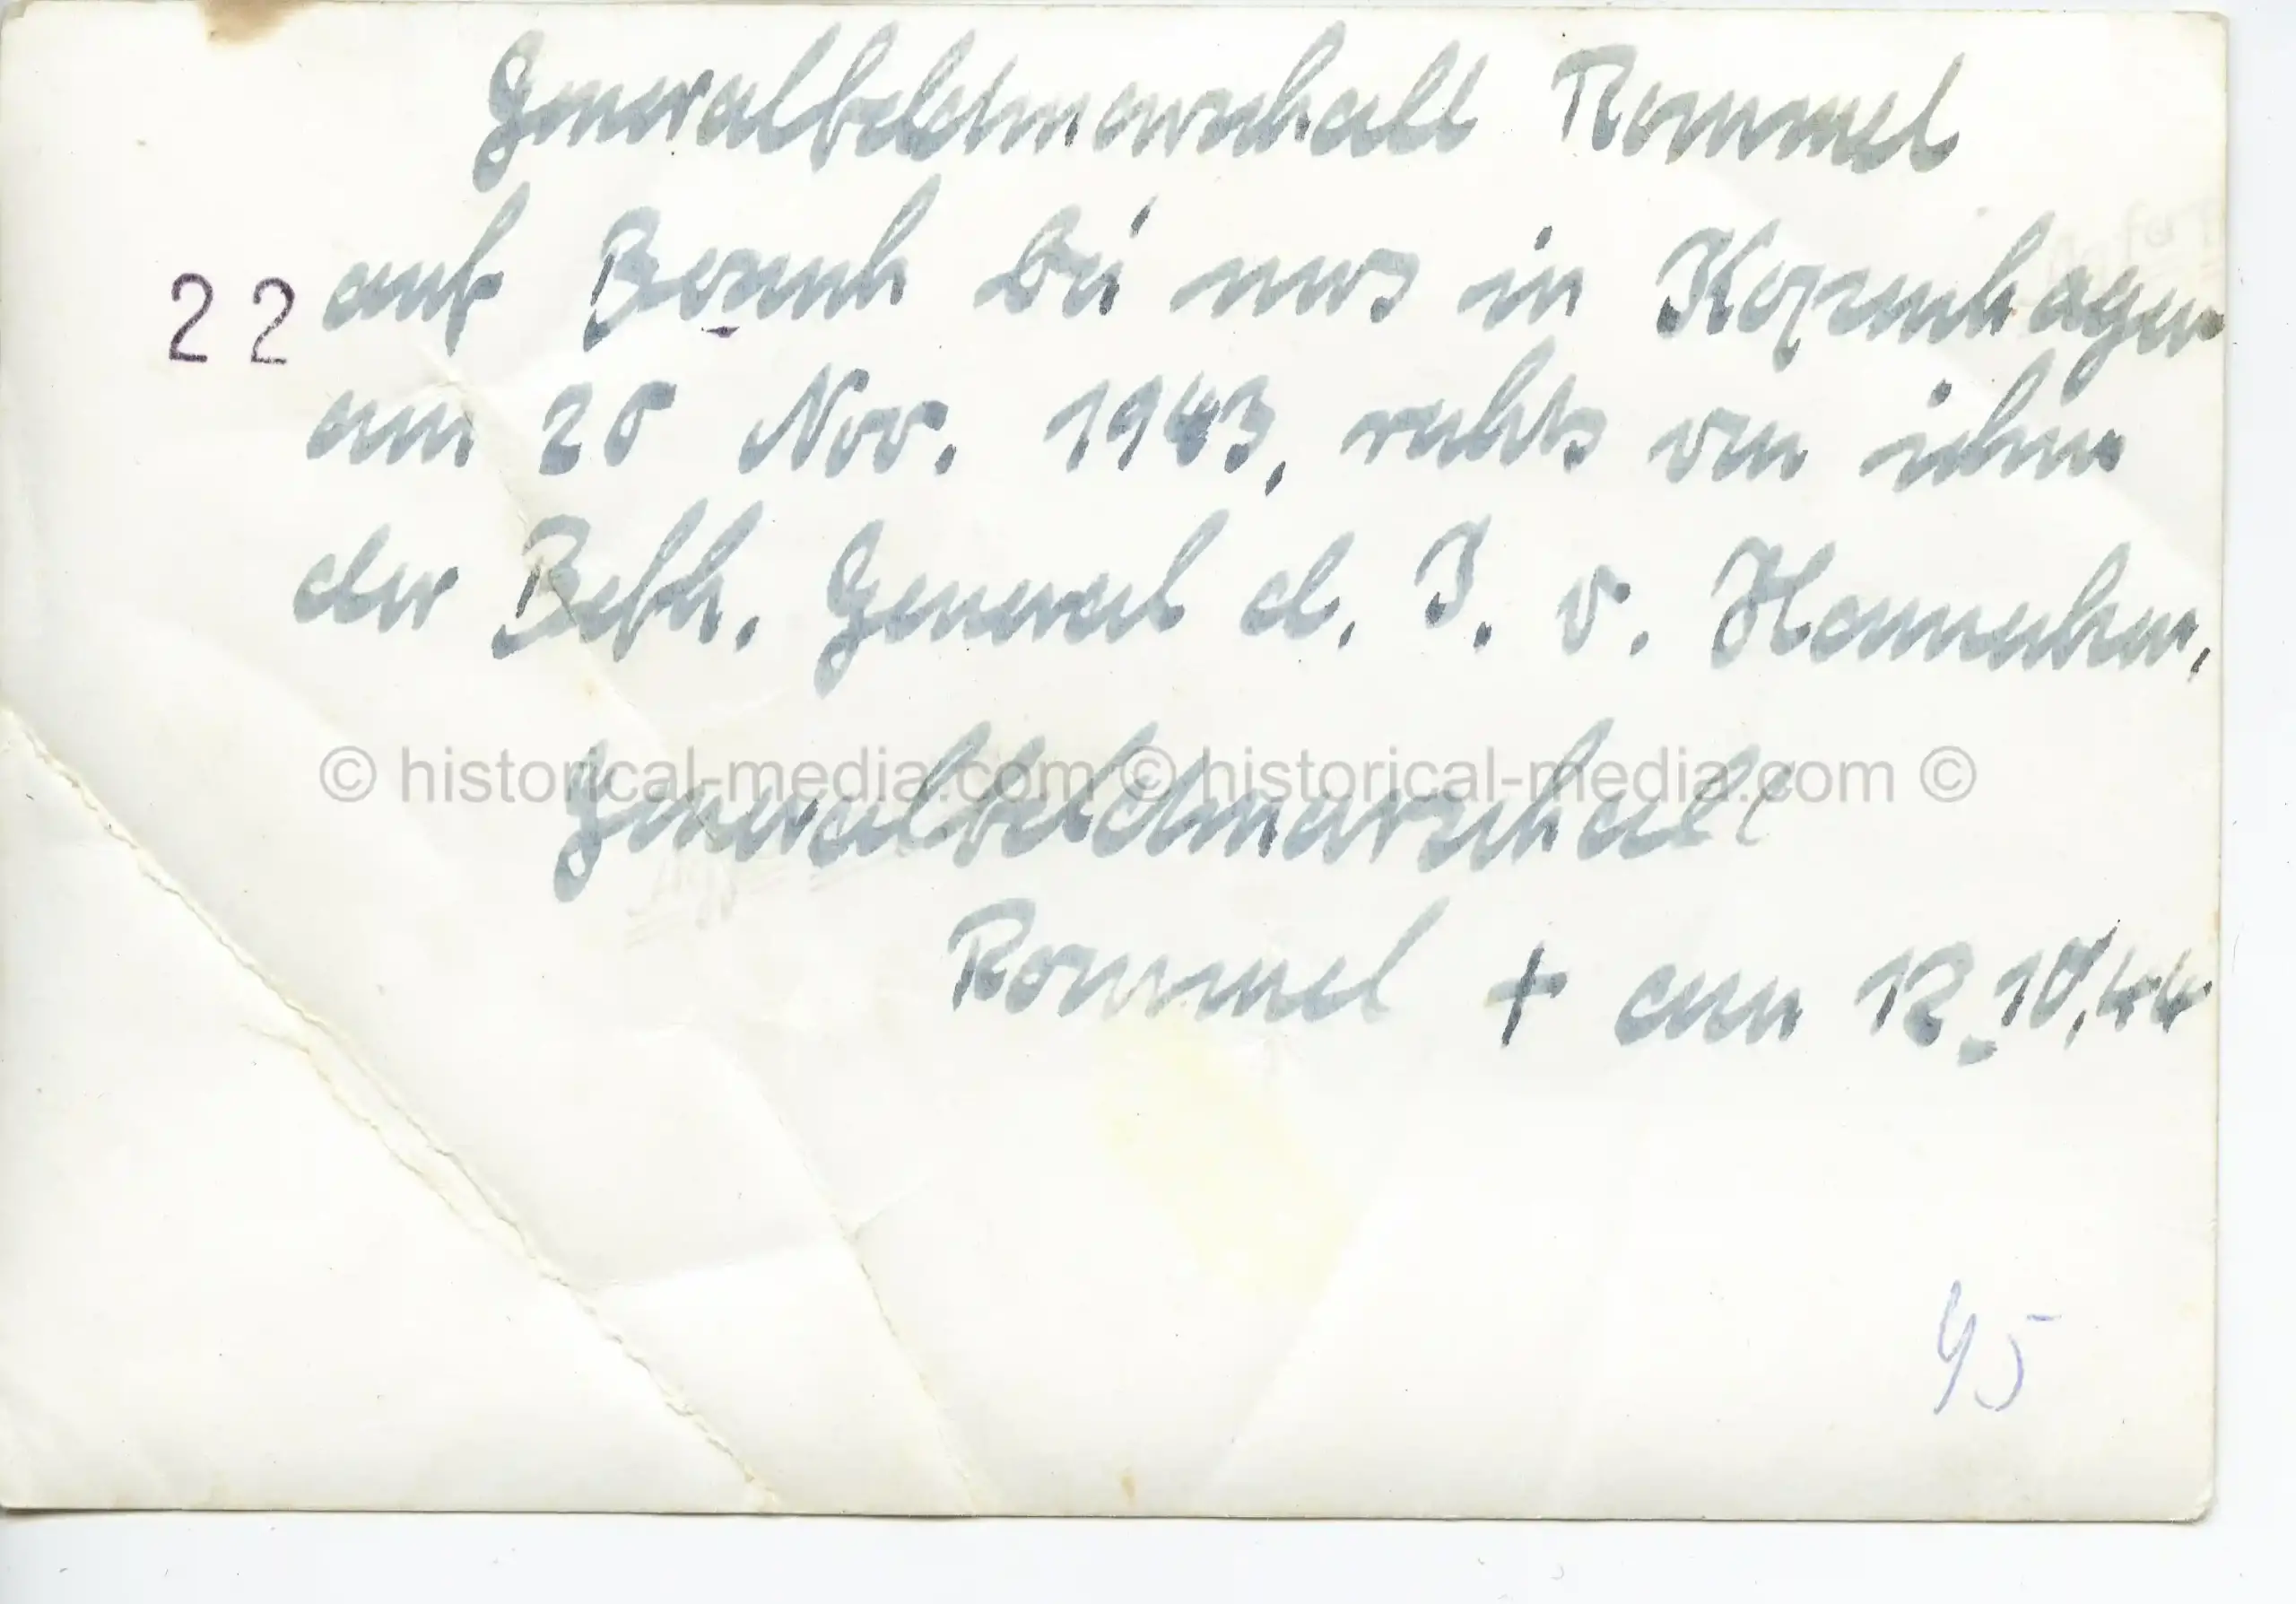 Generalfeldmarschall Rommel
22 auf Besuch bei uns in Kopenhagen
am 28 Nov. 1943, rechts von ihm
der Befh. General d. I. v. Hanneken,
© historical-media.com © historical-media.com ©
Generalfeldmarschall
Rommel + am 12.10.44
45